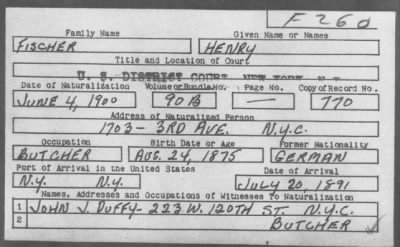 F 260
Family Name Given Name or Names
FISCHER HENRY
Title and Location of Court
U. S. DISTRICT COURT, NEW YORK, N.Y.
Date of Naturalization Volume or Bundle No. Page No. Copy of Record No.
JUNE 4, 1900 901B — 770
Address of Naturalized Person
1703 - 3RD AVE. N.Y.C.
Occupation Birth Date or Age Former Nationality
BUTCHER AUG. 24, 1875 GERMAN
Port of Arrival in the United States Date of Arrival
N.Y. N.Y. JULY 20, 1891
Names, Addresses and Occupations of Witnesses To Naturalization
1 JOHN J. DUFFY - 223 W. 120TH ST. N.Y.C.
2 BUTCHER